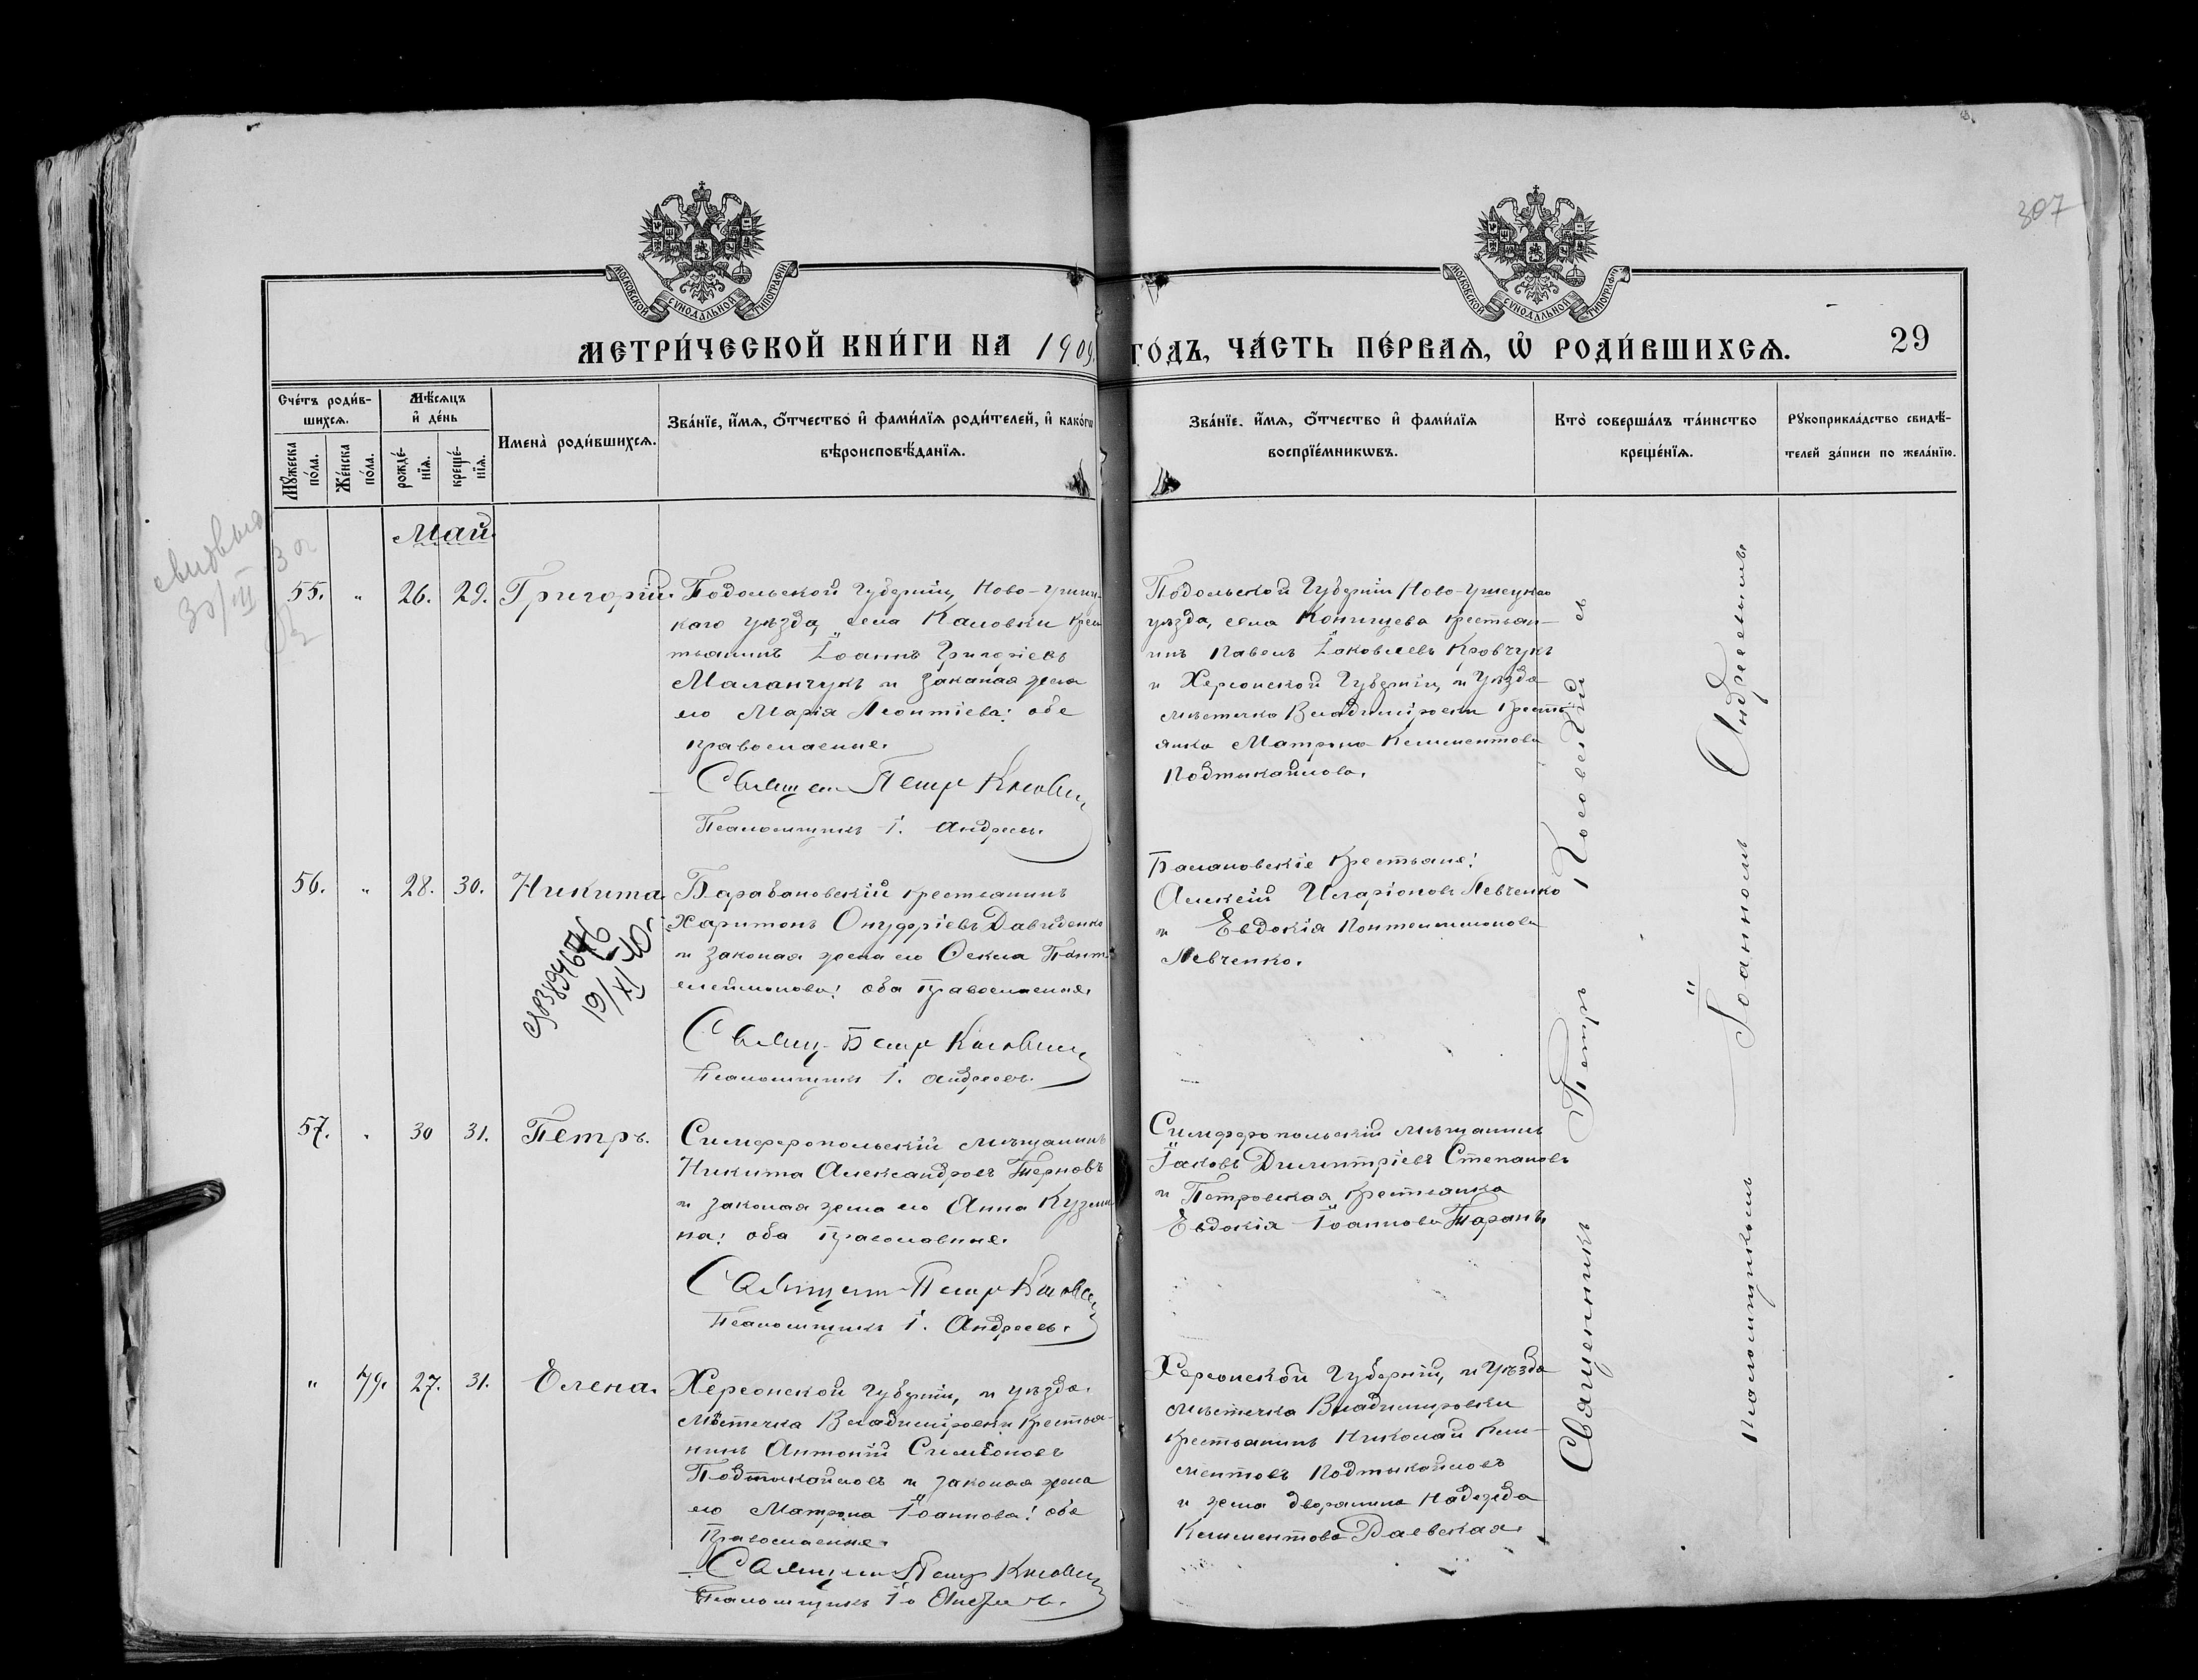 307
МОСКОВСКОЙ СУНОДАЛЬНОЙ ТИПОГРАФІИ
МОСКОВСКОЙ СУНОДАЛЬНОЙ ТИПОГРАФІИ
МЕТРИ́ЧЕСКОЙ КНИ́ГИ НА 1909 ГО́ДЪ, ЧА́СТЬ ПЕ́РВАѦ, Ѡ҆ РОДИ́ВШИХСѦ.
29
Сче́тъ роди́в-
шихсѧ.
Мꙋ́жеска
по́ла.
Же́нска
по́ла.
Мѣ́сѧцъ
и҆ де́нь
рожде́-
нїѧ.
креще́-
нїѧ.
Имена̀ роди́вшихсѧ.
Зва́нїе, и҆́мѧ, ѻ҆́тчество и҆ фами́лїѧ роди́телей, и҆ како́гѡ
вѣроисповѣ́данїѧ.
Зва́нїе, и҆́мѧ, ѻ҆́тчество и҆ фами́лїѧ
воспрїе́мникѡвъ.
Кто̀ соверша́лъ та́инство
креще́нїѧ.
Рꙋкоприкла́дство свидѣ́-
телей за́писи по жела́нїю.
Май.
55. „ 26. 29. Григорій.
Подольской Губерніи, Ново-Ушиц-
каго уѣзда, села Каловки крес
тьянинъ Іоаннъ Григоріевъ
Маланчукъ и законая жена
его Марія Леонтіева: обе
православные.
Священ Петръ Клювин
Псаломщикъ І. Андреевъ.
Подольской Губерніи Ново-Ушецкаго
уѣзда, села Конищева крестьян-
инъ Павелъ Іаковлевъ Кровчукъ
и Херсонской Губерніи, и Уѣзда
мѣстечка Владиміровки крестья
янка Матрона Климентова
Подтыкайлова.
56. „ 28. 30. Никита.
19/XI 40
Барабановскій крестьянинъ
Харитонъ Онуфріевъ Давиденко
и законая жена его Фекла Пант
елеймонова: оба Православные.
Свящ. Петръ
Псаломщикъ І. Андреевъ.
Балановскіе крестьяне:
Алексій Иларіоновъ Левченко
и Евдокія Понтелимонова
Левченко.
57. „ 30 31. Петръ.
Симферопольскій мѣщанинъ
Никита Александровъ Терновъ
и законая жена его Анна Кузми
на: оба Православные.
Священ Петръ
Псаломщикъ І. Андреевъ.
Симферопольскій мѣщанинъ
Іаковъ Димитріевъ Степановъ
и Петровская крестьянка
Евдокія Іоаннова Таранъ.
„ 79. 27. 31. Елена.
Херсонской Губерніи, и уѣзда.
Мѣстечка Владиміровки крестья-
нинъ Антоній Симеоновъ
Подтыкайловъ и законая жена
его Матрона Іоаннова: оба
Православные.
Священ Петръ
Псаломщикъ І. Андреевъ.
Херсонской Губерніи, и Уѣзда
мѣстечка Владимировки
крестьянинъ Николай Кли-
ментовъ Подтыкайловъ
и жена дворянина Надежда
Климентова Раевская.
Священникъ Петръ
Псаломщикомъ Іоанномъ Андреевымъ.